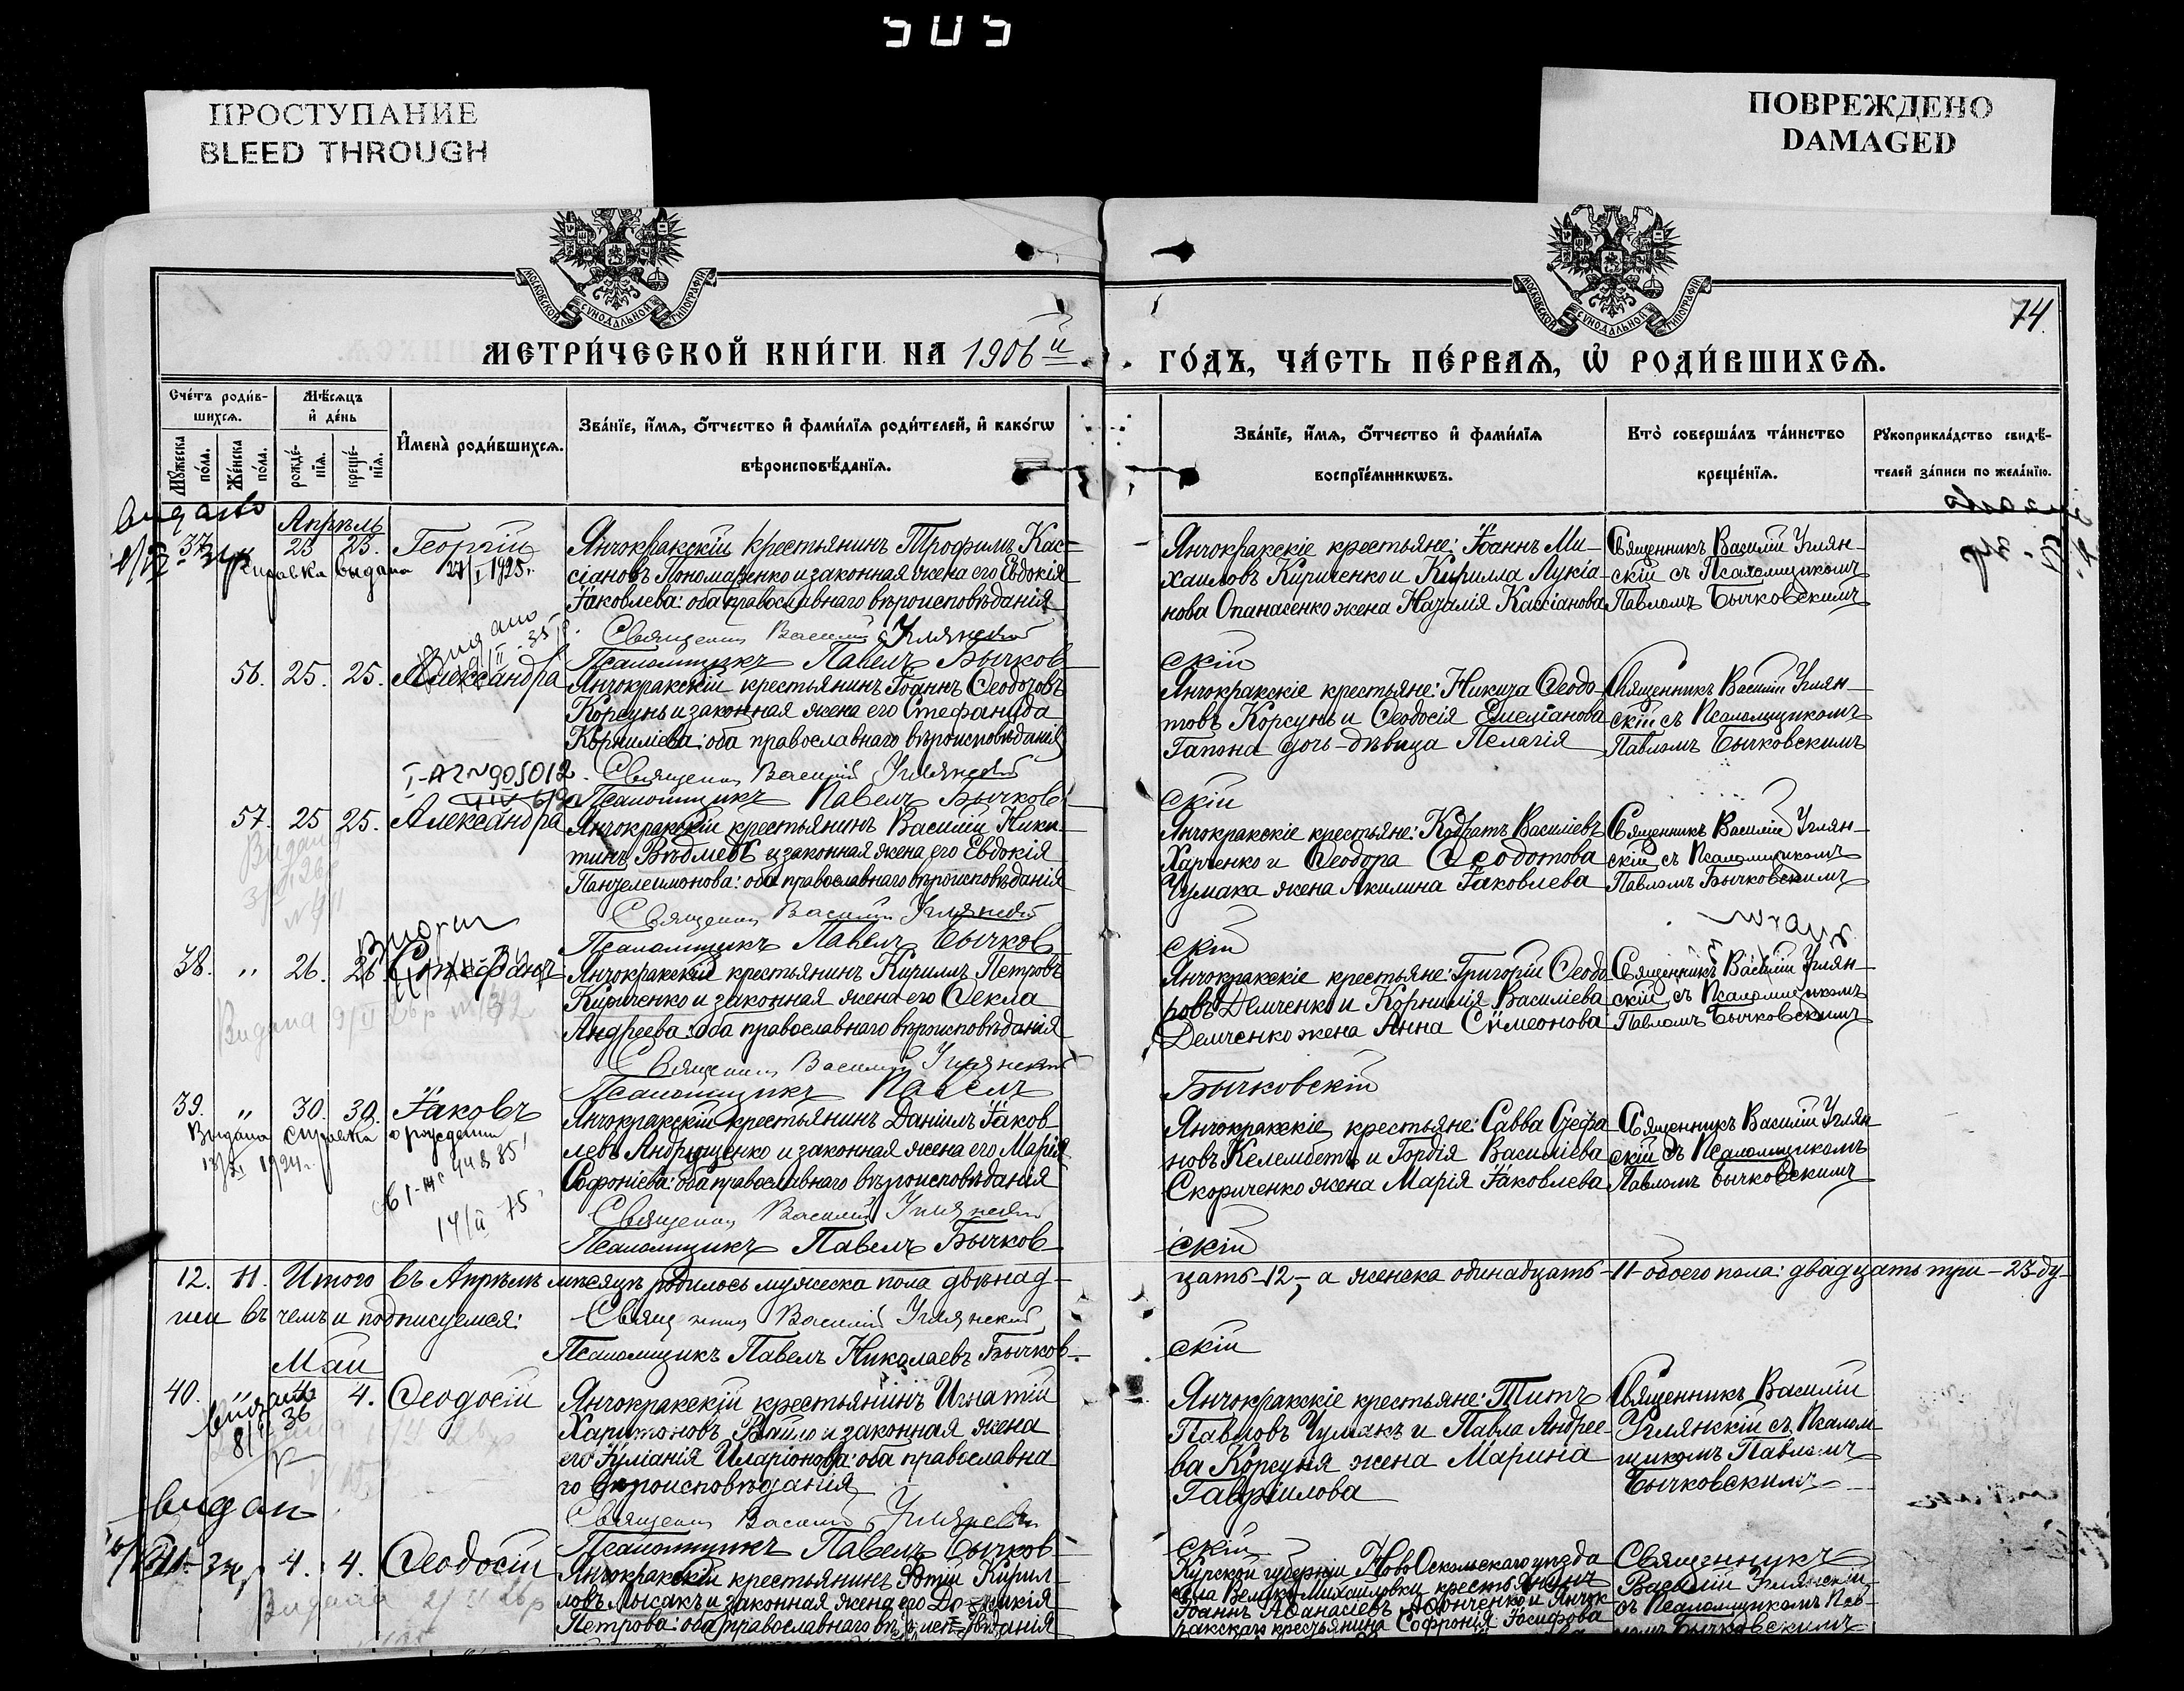 505
ПРОСТУПАНИЕ
BLEED THROUGH
ПОВРЕЖДЕНО
DAMAGED
МОСКОВСКОЙ СѴНОДАЛЬНОЙ ТИПОГРАФІИ
МОСКОВСКОЙ СѴНОДАЛЬНОЙ ТИПОГРАФІИ
74.
МЕТРИ́ЧЕСКОЙ КНИ́ГИ НА 1906й
ГО́ДЪ, ЧА́СТЬ ПЕ́РВАѦ, Ѡ҆ РОДИ́ВШИХСѦ.
Сче́тъ роди́в-
шихсѧ.
Мѣ́сѧцъ
и҆ де́нь
Мꙋ́жеска по́ла.
Же́нска по́ла.
рожде́-нїѧ.
креще́-нїѧ.
И҆мена̀ роди́вшихсѧ.
Зва́нїе, и҆́мѧ, ѻ҆́тчество и҆ фами́лїѧ роди́телей, и҆ како́гѡ
вѣроисповѣ́данїѧ.
Зва́нїе, и҆́мѧ, ѻ҆́тчество и҆ фами́лїѧ
воспрїе́мникѡвъ.
Кто̀ соверша́лъ та́инство
креще́нїѧ.
Рꙋкоприкла́дство свидѣ́-
телей за́писи по жела́нїю.
Апрѣль
37. 23 23. Георгій
справка выдана 1925г.
Янчокракскій крестьянинъ Трофимъ Кас-
сіановъ Пономаренко и законная жена его Евдокія
Іаковлева: оба православнаго вѣроисповѣданія
Священник Василій Углянский
Псаломщикъ Павелъ Бычков-
Янчокракскіе крестьяне: Іоаннъ Ми-
хаиловъ Кириченко и Кирилла Лукіа-
нова Опанасенко жена Наталія Кассіанова
скій
Священникъ Василій Углян-
скій съ Псаломщикомъ
Павломъ Бычковскимъ
56. 25. 25. Александра
Янчокракскій крестьянинъ Іоаннъ Ѳеодотовъ
Корсунь и законная жена его Стефанида
Корниліева: оба православнаго вѣроисповѣданія
Священник Василій Углянский
Псаломщикъ Павелъ Бычков-
Янчокракскіе крестьяне: Никита Ѳеодо-
товъ Корсунь и Ѳеодосія Емеліанова
Гапона дочь-дѣвица Пелагія
скій
Священникъ Василій Углян-
скій съ Псаломщикомъ
Павломъ Бычковскимъ
57. 25 25. Александра
Янчокракскій крестьянинъ Василій Ники-
тинъ Вѣдмедь и законная жена его Евдокія
Пантелеимонова: оба православнаго вѣроисповѣданія
Священник Василій Углянский
Псаломщикъ Павелъ Бычков-
Янчокракскіе крестьяне: Кодратъ Василіевъ
Харченко и Ѳеодора Ѳеодотова
Чумака жена Акилина Іаковлева
скій
Священникъ Василій Углян-
скій съ Псаломщикомъ
Павломъ Бычковскимъ
38. " 26. 26 Стефанъ
Янчокракскій крестьянинъ Кириллъ Петровъ
Кириченко и законная жена его Ѳекла
Андреева: оба православнаго вѣроисповѣданія
Священник Василій Углянский
Псаломщикъ Павелъ
Янчокракскіе крестьяне: Григорій Ѳеодо-
ровъ Демченко и Корнилія Василіева
Демченко жена Анна Сѵмеонова
Бычковскій
Священникъ Василій Углян-
скій съ Псаломщикомъ
Павломъ Бычковскимъ
39. " 30. 30. Іаковъ
Видана справка о рождении
1924г.
Янчокракскій крестьянинъ Даніилъ Іаков-
левъ Андрющенко и законная жена его Марія
Софоніева: оба православнаго вѣроисповѣданія
Священник Василій Углянский
Псаломщикъ Павелъ Бычков-
Янчокракскіе крестьяне: Савва Стефа-
новъ Келембетъ и Гордія Василіева
Скориченко жена Марія Іаковлева
скій
Священникъ Василій Углян-
скій съ Псаломщикомъ
Павломъ Бычковскимъ
12. 11. Итого въ Апрѣлѣ мѣсяцѣ родилось мужеска пола двѣнад-
цать-12-, а женска одинадцать-11-обоего пола: двадцать три-23 ду-
ши въ чемъ и подписуемся: Священник Василій Углянский
Псаломщикъ Павелъ Николаевъ Бычков-
скій
Май
40. 4. 4. Ѳеодосій
Янчокракскій крестьянинъ Игнатій
Харитоновъ Вайло и законная жена
его Іуліанія Иларіонова: оба православна
го вѣроисповѣданія
Священник Василій Углянский
Псаломщикъ Павелъ Бычков-
Янчокракскіе крестьяне: Титъ
Павловъ Чумакъ и Павла Андрее-
ва Корсуня жена Марина
Гавріилова
скій
Священникъ Василій
Углянскій съ Псалом-
щикомъ Павломъ
Бычковскимъ
видан
41. 4. 4. Ѳеодосій
Янчокракскій крестьянинъ Фотій Кирил-
ловъ Лысакъ и законная жена его
Петрова: оба православнаго вѣроисповѣданія
Курской губерніи НовоОскольскаго уѣзда
села Велико-Михаиловки крестьянинъ
Іоаннъ Аѳанасіевъ Аѳонченко и Янчок-
ракскаго крестьянина Софронія Іосифова
Священникъ
Василій Углянскій
съ Псаломщикомъ Пав-
ломъ Бычковскимъ